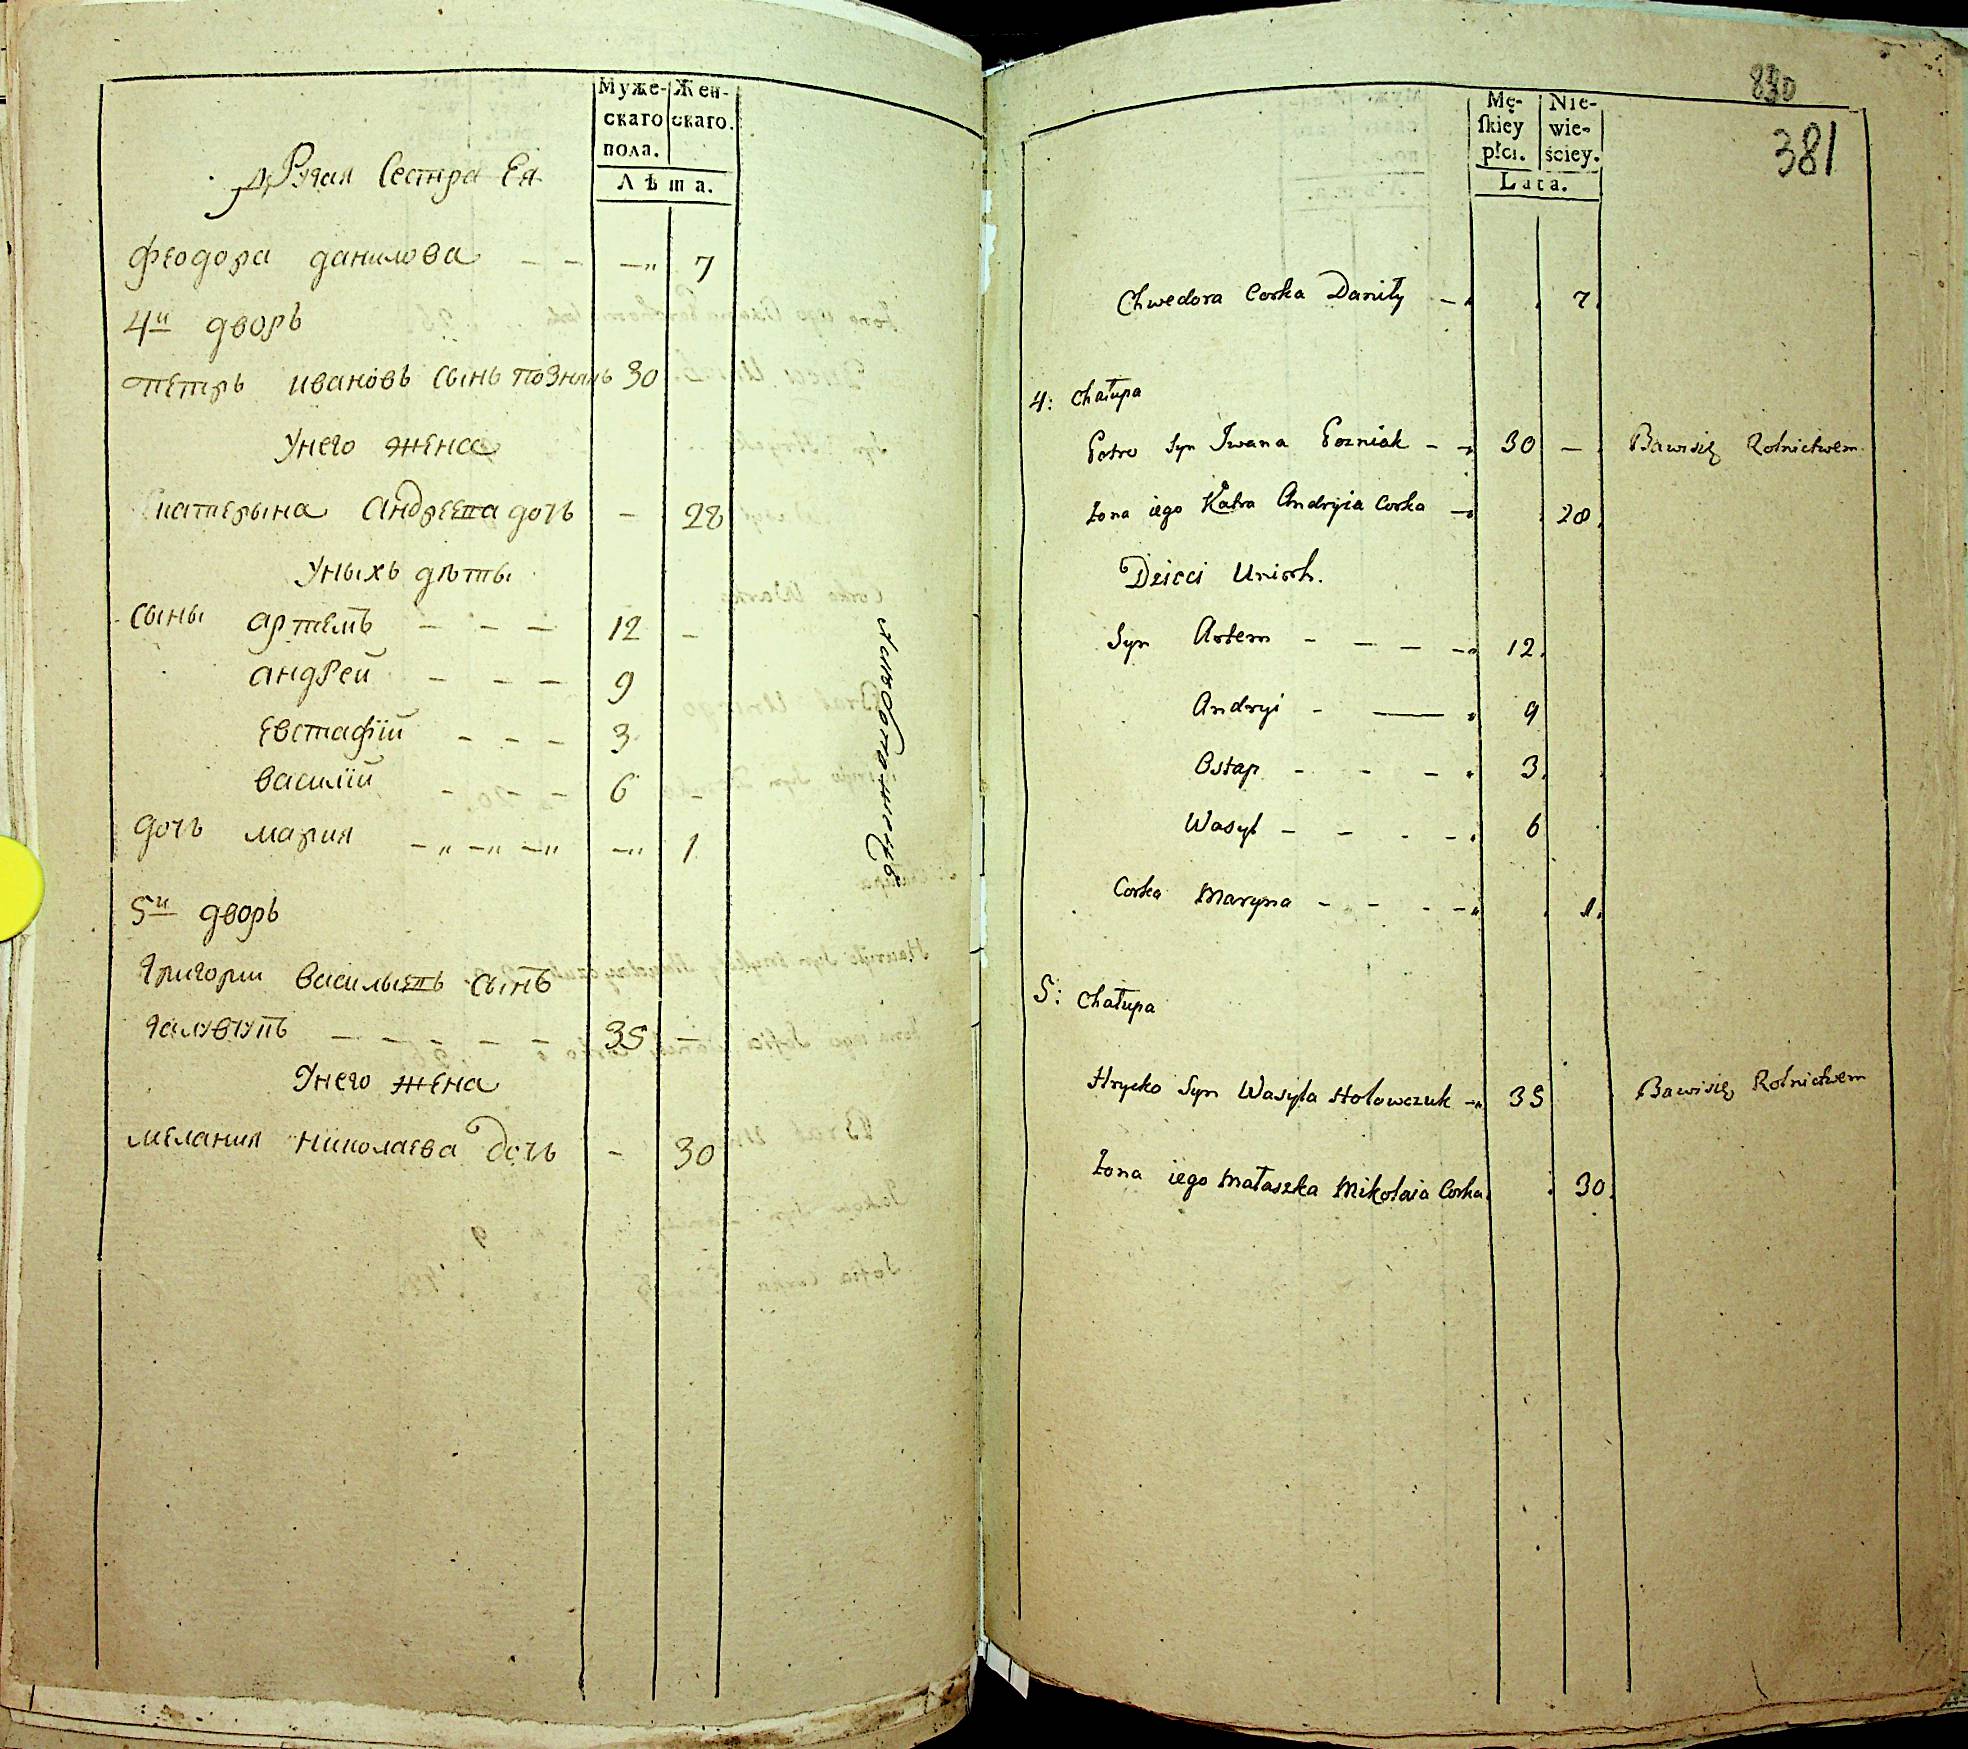 Муже-
скаго
пола.
Жен-
скаго.
Лѣта.
другая Сестра Ея
Феодора данилова — — —„ 7
4й дворъ
петръ ивановъ Сынъ позnякъ 30
Унего жена
Екатерына Андреева дочь — 28
Уныхъ дѣты
Сыны артемъ — — — 12 —
андрей — — — 9
Евстафій — — — 3
василій — — — 6 —
дочь мария —„ —„ —„ —„ 1
5й дворъ
Григории василыевъ Сынъ
— — — — — 35 —
Унего жена
мелания николаева Дочь — 30
830
381
Mę-
skiey
płci.
Nie-
wie-
ściey.
Lata.
Chwedora Corka Daniły — 7.
4: Chałupa
Petro Syn Iwana Pozniak — — 30 — Bawisię Rolnictwem.
Żona iego Katra Andryia Corka — 28.
Dzieci Unich.
Syn Artem — — — — 12.
Andryi — — 9
Ostap — — — 3.
Wasyl — — — — 6
Corka Maryna — — — — 1.
5: Chałupa
Hrycko Syn Wasyla Holowczuk — 35 Bawisię Rolnictwem
Żona iego Małaszka Mikołaia Corka. 30.